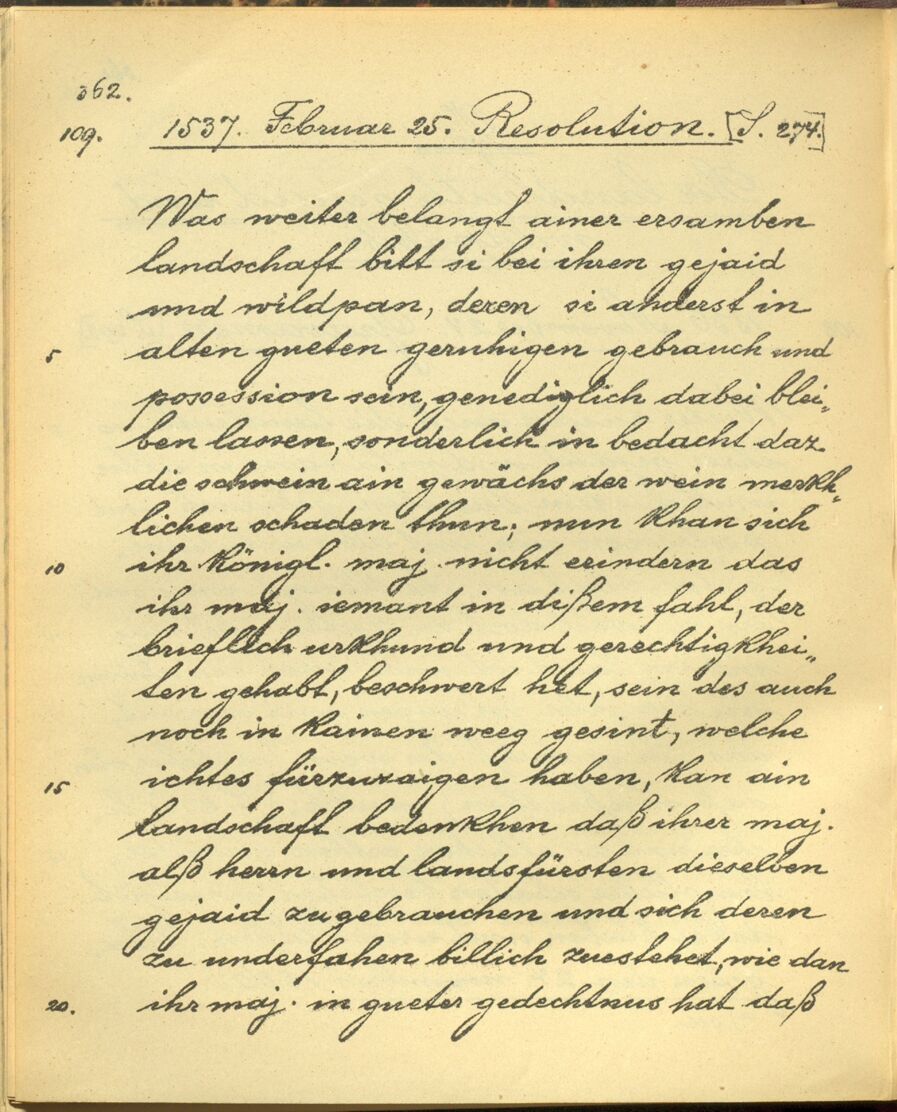 362.
109. 1537. Februar 25. Resolution. [S. 274.]
Was weiter belangt ainer ersamben
landschaft bitt si bei ihren gejaid
und wildpan, deren si anderst in
5 alten gueten geruhigen gebrauch und
possession sein, genediglich dabei blei„
ben lassen, sonderlich in bedacht daz
die schwein ain gewächs der wein merkh„
lichen schaden thun; nun khan sich
10 ihr königl. maj. nicht erindern das
ihr maj. iemant in dißem fahl, der
brieflich urkhund und gerechtigkhei„
ten gehabt, beschwert het, sein des auch
noch in kainen weeg gesint, welche
15 ichtes fürzuzaigen haben, kan ain
landschaft bedenkhen daß ihrer maj.
alß herrn und landsfürsten dieselben
gejaid zugebrauchen und sich deren
zu underfahen billich zuestehet, wie dan
20. ihr maj. in gueter gedechtnus hat daß